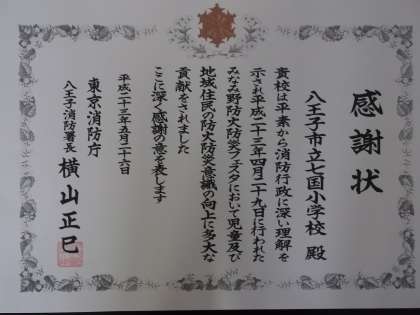 感謝状
八王子市立七国小学校 殿
貴校は平素から消防行政に深い理解を
示され平成二十三年四月二十九日に行われた
みなみ野防火防災フェスタにおいて児童及び
地域住民の防火防災意識の向上に多大な
貢献をされました
ここに深く感謝の意を表します
平成二十三年五月二十六日
東京消防庁
八王子消防署長 横山正巳